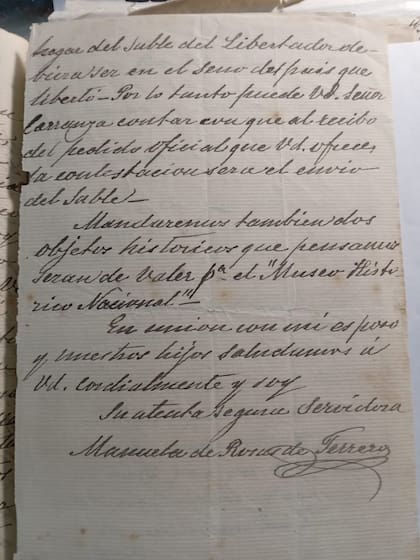 hogar del Sable del Libertador de-
biera ser en el seno del pais que
libertó - Por lo tanto puede Vd. Señor
Carranza contar con que al recibo
del pedido oficial que Vd. ofrece,
la contestacion sera el envio
del Sable -
Mandaremos tambien dos
objetos historicos que pensamos
seran de valer pª el "Museo Histo
rico Nacional" -
En union con mi esposo
y nuestros hijos saludamos á
Vd. cordialmente y soy
Su atenta segura Servidora
Manuela de Rosas de Terrero